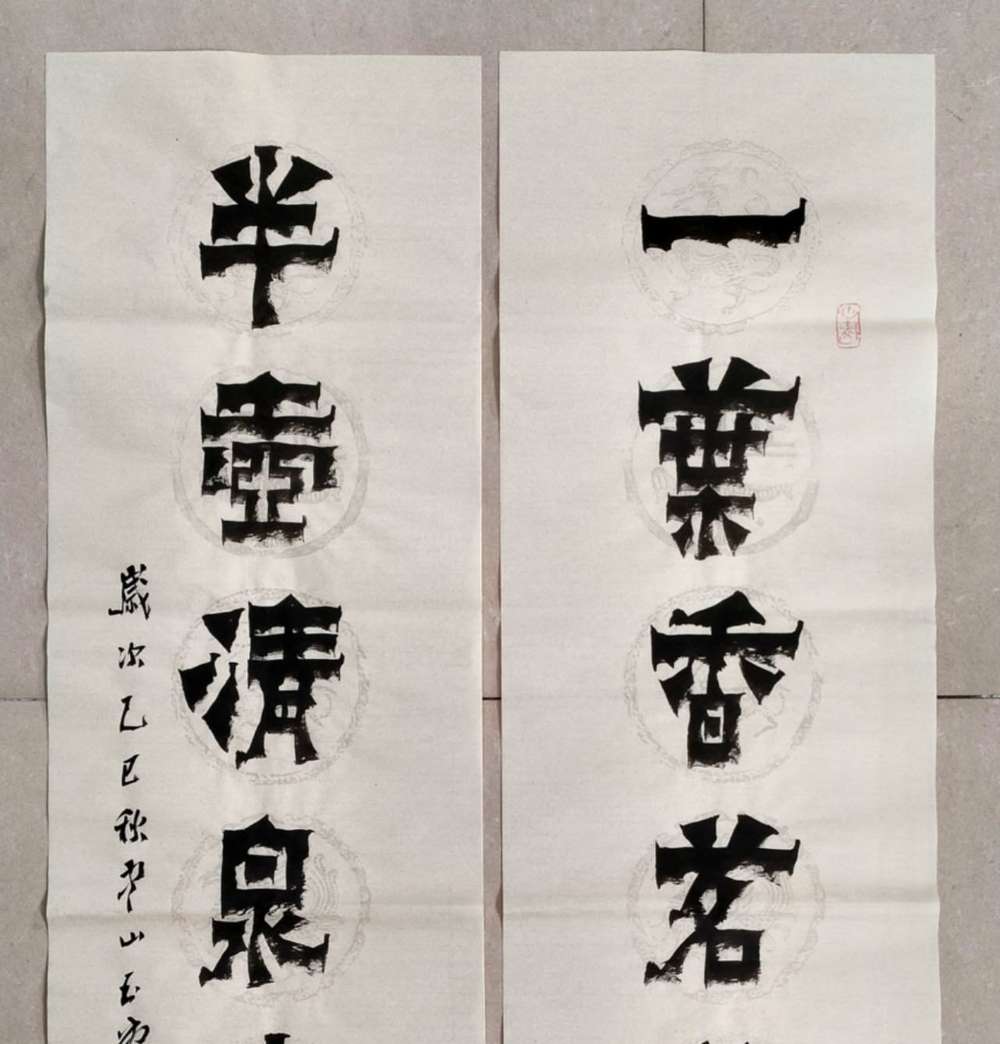 一葉香茗
半壺清泉
歲次乙巳秋
山玉